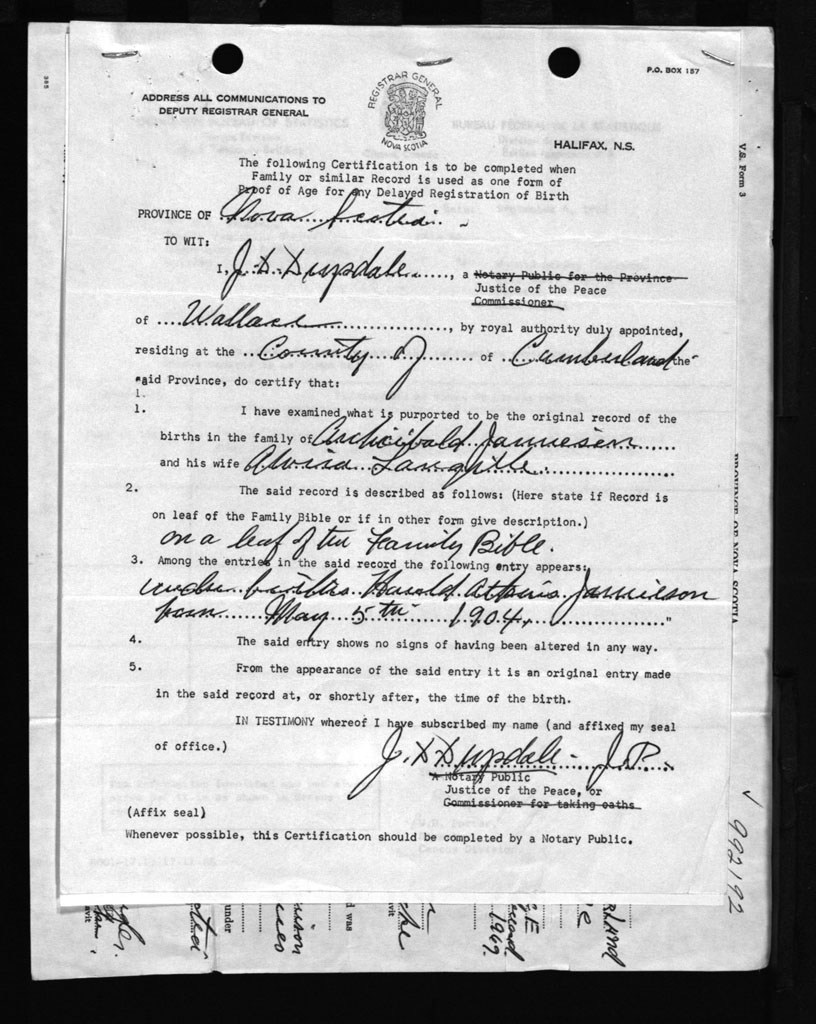 P.O. BOX 157
REGISTRAR GENERAL
NOVA SCOTIA
ADDRESS ALL COMMUNICATIONS TO
DEPUTY REGISTRAR GENERAL
HALIFAX, N.S.
V.S. Form 3
385
The following Certification is to be completed when
Family or similar Record is used as one form of
Proof of Age for any Delayed Registration of Birth
PROVINCE OF Nova Scotia
TO WIT:
I, J. D. Dupdale, a Notary Public for the Province
Justice of the Peace
Commissioner
of Wallace, by royal authority duly appointed,
residing at the County of of Cumberland the
said Province, do certify that:
1.
1. I have examined what is purported to be the original record of the
births in the family of Archibald Jamieson
and his wife Alvina Langille
2. The said record is described as follows: (Here state if Record is
on leaf of the Family Bible or if in other form give description.)
on a leaf of the Family Bible.
3. Among the entries in the said record the following entry appears:
under births Harold Jamieson
born May 5th 1904."
4. The said entry shows no signs of having been altered in any way.
5. From the appearance of the said entry it is an original entry made
in the said record at, or shortly after, the time of the birth.
IN TESTIMONY whereof I have subscribed my name (and affixed my seal
of office.)
J. D. Dupdale J.P.
A Notary Public
Justice of the Peace, or
Commissioner for taking oaths
(Affix seal)
Whenever possible, this Certification should be completed by a Notary Public.
PROVINCE OF NOVA SCOTIA
992192
under
d was
1967.